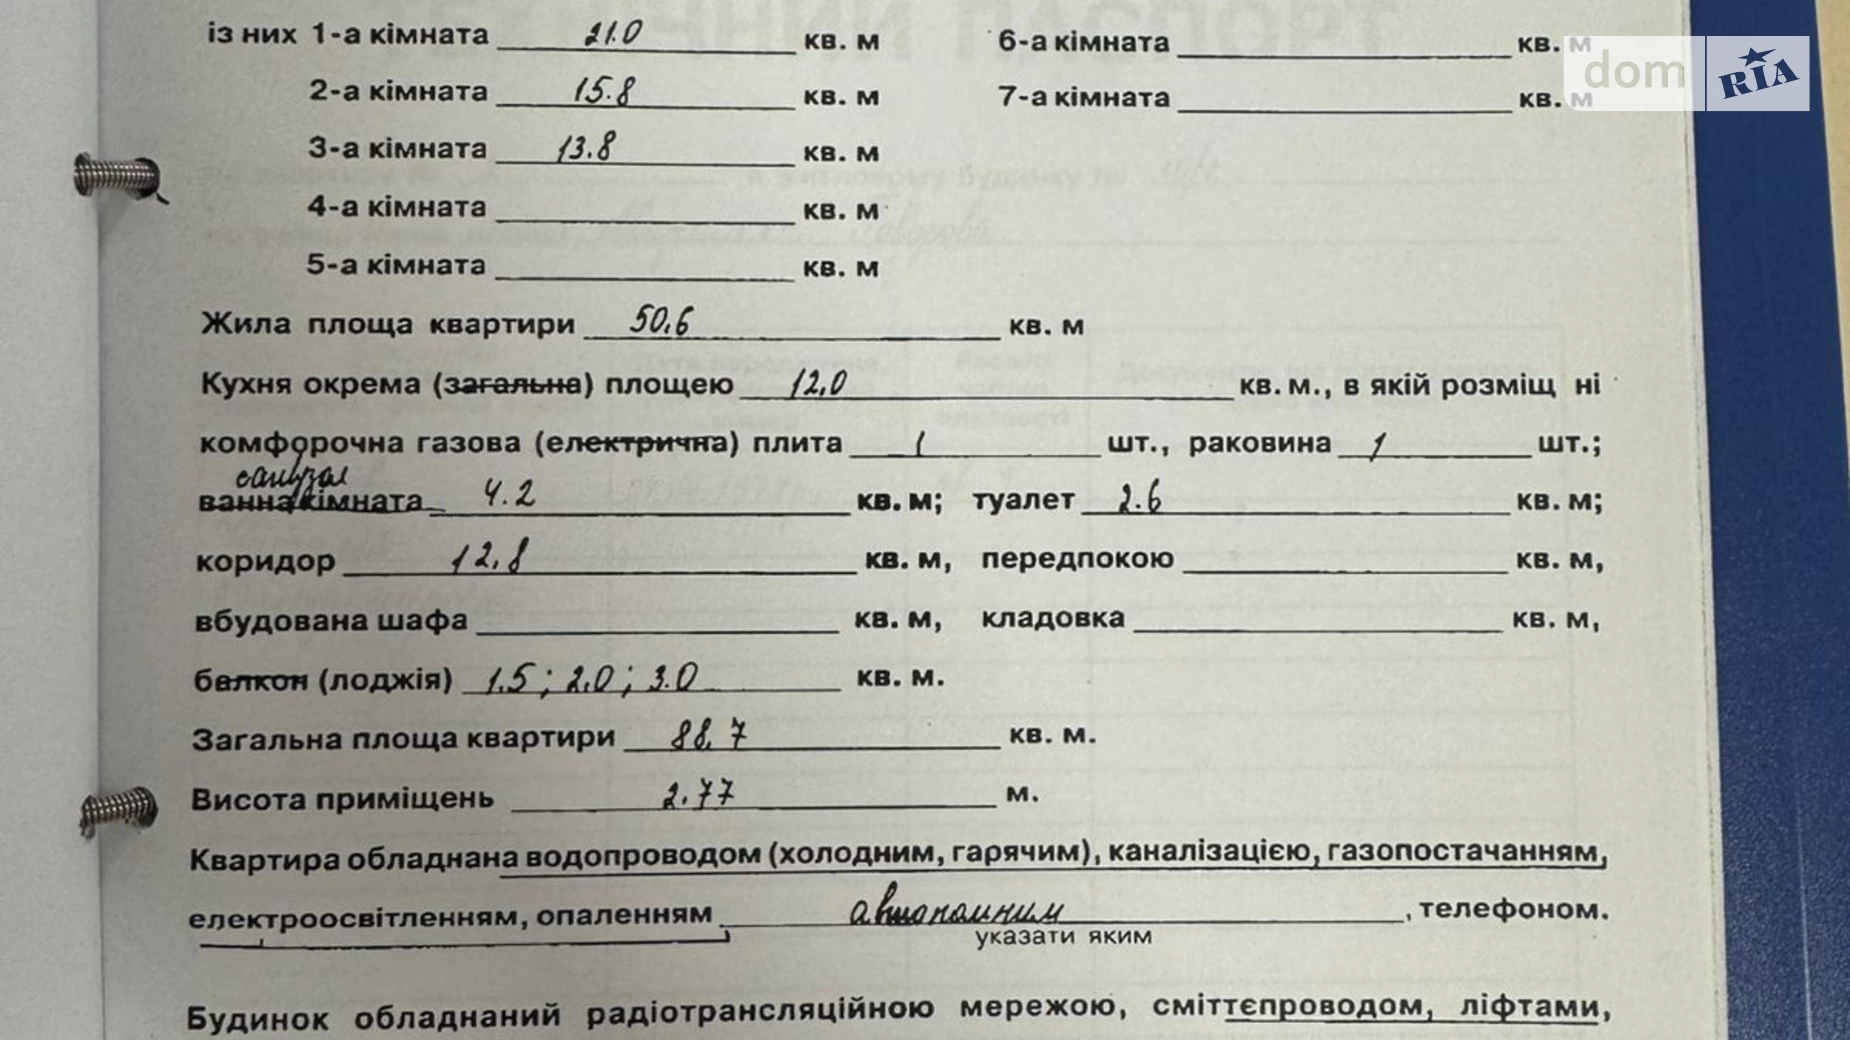 із них 1-а кімната 21.0 кв. м 6-а кімната кв. м
2-а кімната 15.8 кв. м 7-а кімната кв. м
dom RIA
3-а кімната 13.8 кв. м
4-а кімната кв. м
5-а кімната кв. м
Жила площа квартири 50,6 кв. м
Кухня окрема (загальна) площею 12,0 кв. м., в якій розміщ ні
комфорочна газова (електрична) плита 1 шт., раковина 1 шт.;
санвузол
ванна кімната 4.2 кв. м; туалет 2.6 кв. м;
коридор 12,8 кв. м, передпокою кв. м,
вбудована шафа кв. м, кладовка кв. м,
балкон (лоджія) 1.5 ; 2.0 ; 3.0 кв. м.
Загальна площа квартири 88,7 кв. м.
Висота приміщень 2.77 м.
Квартира обладнана водопроводом (холодним, гарячим), каналізацією, газопостачанням,
електроосвітленням, опаленням автономним , телефоном.
указати яким
Будинок обладнаний радіотрансляційною мережою, сміттєпроводом, ліфтами,